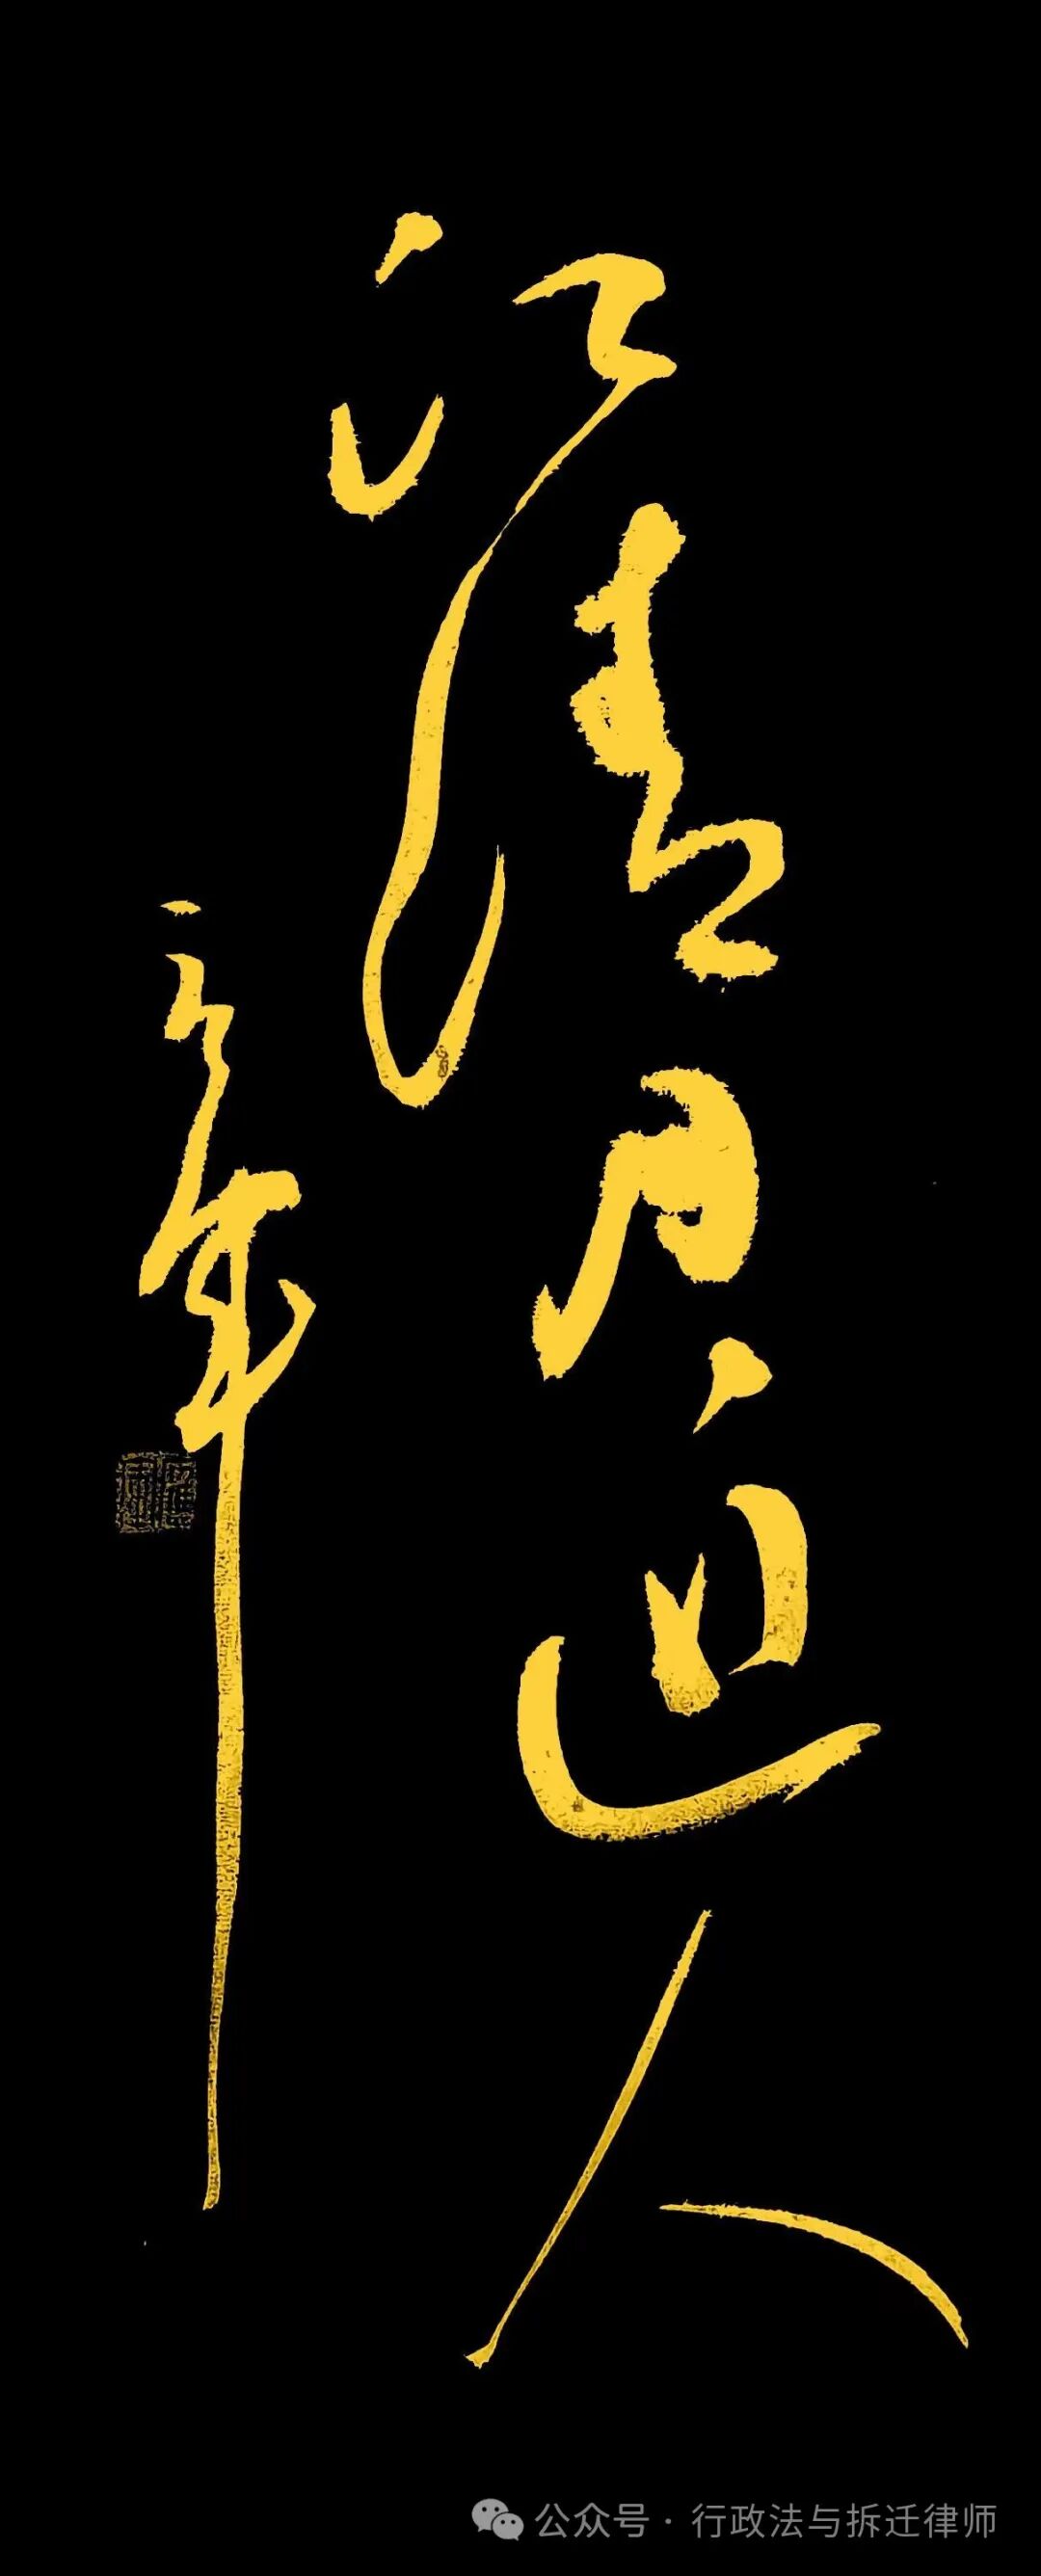 江清月近人
公众号 · 行政法与拆迁律师